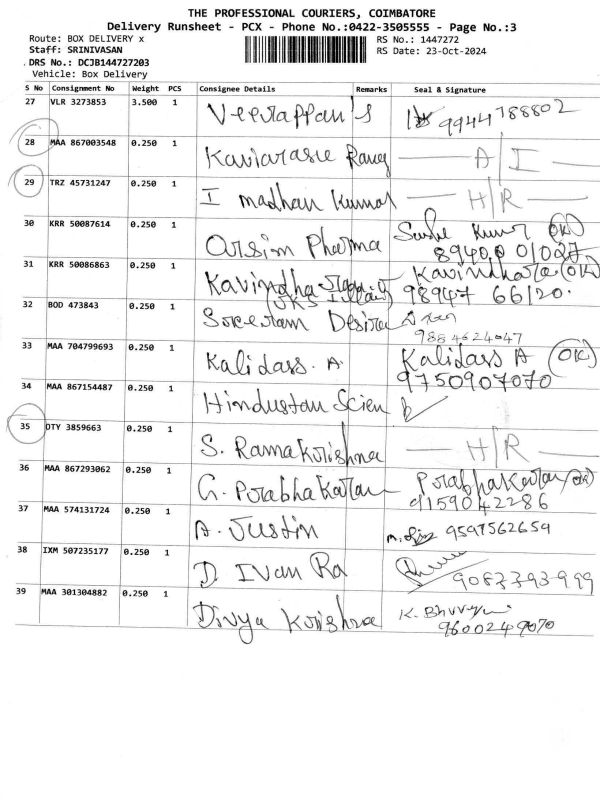 THE PROFESSIONAL COURIERS, COIMBATORE
Delivery Runsheet - PCX - Phone No.:0422-3505555 - Page No.:3
Route: BOX DELIVERY x
RS No.: 1447272
Staff: SRINIVASAN
RS Date: 23-Oct-2024
DRS No.: DCJB144727203
Vehicle: Box Delivery
S No Consignment No Weight PCS Consignee Details Remarks Seal & Signature
27 VLR 3273853 3.500 1 Veerappan's 9944788802
28 MAA 867003548 0.250 1 Kaviarasu A/I
29 TRZ 45731247 0.250 1 I madhan Kumar H/R
30 KRR 50087614 0.250 1 Orsim Pharma Kumar OK
89400 01027
31 KRR 50086863 0.250 1 Kavindhara Kavindhara OK
98947 66120.
32 BOD 473843 0.250 1 Sreeram
9884624047
33 MAA 704799693 0.250 1 Kalidass. A. Kalidass A OK
9750907070
34 MAA 867154487 0.250 1 Hindustan Scien
35 OTY 3859663 0.250 1 S. Ramakrishna H/R
36 MAA 867293062 0.250 1 G. Prabhakaran Prabhakaran OK
9159042286
37 MAA 574131724 0.250 1 A. Justin 9597562659
38 IXM 507235177 0.250 1 D. Ivan Ra 9087393999
39 MAA 301304882 0.250 1 Divya Krishna K.
9600249070